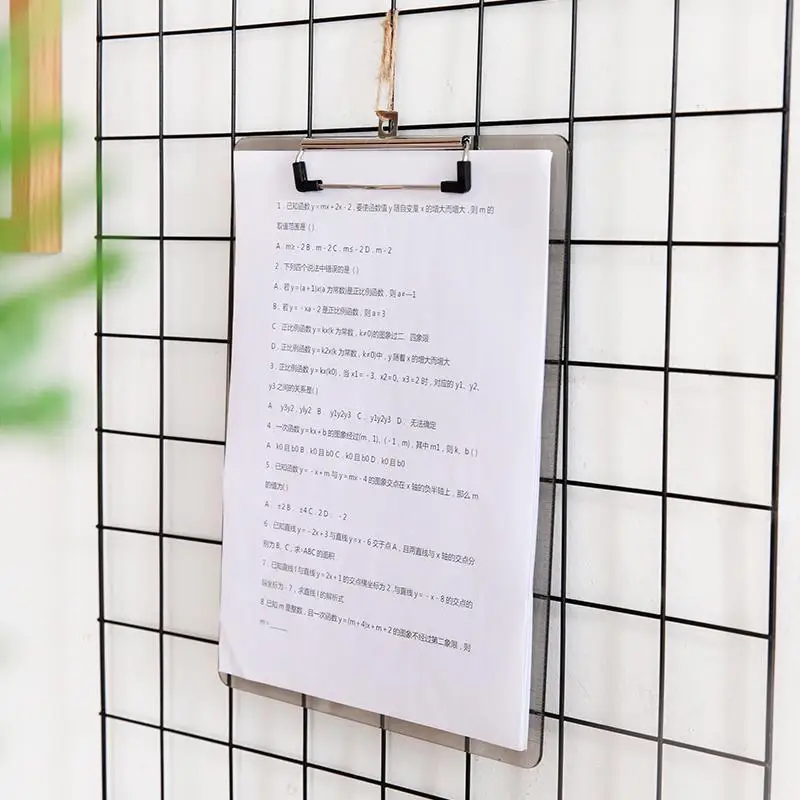 1．已知函数 y＝mx+2x-2，要使函数值 y 随自变量 x 的增大而增大，则 m 的
取值范围是（）
A．m≥-2 B．m-2 C．m≤-2 D．m-2
2．下列四个说法中错误的是（）
A．若 y＝(a+1)x(a 为常数)是正比例函数，则 a≠—1
B．若 y＝－xa-2 是正比例函数，则 a＝3
C 正比例函数 y＝kx(k 为常数，k≠0)的图象过二、四象限
D．正比例函数 y＝k2x(k 为常数，k≠0)中，y 随着 x 的增大而增大
3．正比例函数 y＝kx(k0)，当 x1＝-3、x2＝0、x3＝2 时，对应的 y1、y2、
y3 之间的关系是()
A y3y2，yly2 B y1y2y3 C．y1y2y3 D．无法确定
4．一次函数 y＝kx+b 的图象经过(m，1)、(-1，m)，其中 m1，则 k、b（）
A k0 且 b0 B．k0 且 b0 C．k0 且 b0 D．k0 且 b0
5．已知函数 y＝－x+m 与 y＝mx-4 的图象交点在 x 轴的负半轴上，那么 m
的值为()
A．±2 B．±4 C．2 D．-2
6．已知直线 y＝－2x+3 与直线 y＝x-6 交于点 A，且两直线与 x 轴的交点分
别为 B、C，求△ABC 的面积
7．已知直线 l 与直线 y＝2x+1 的交点横坐标为 2，与直线 y＝－x-8 的交点的
纵坐标为-7，求直线 l 的解析式
8 已知 m 是整数，且一次函数 y＝(m+4)x+m+2 的图象不经过第二象限，则
m＝______